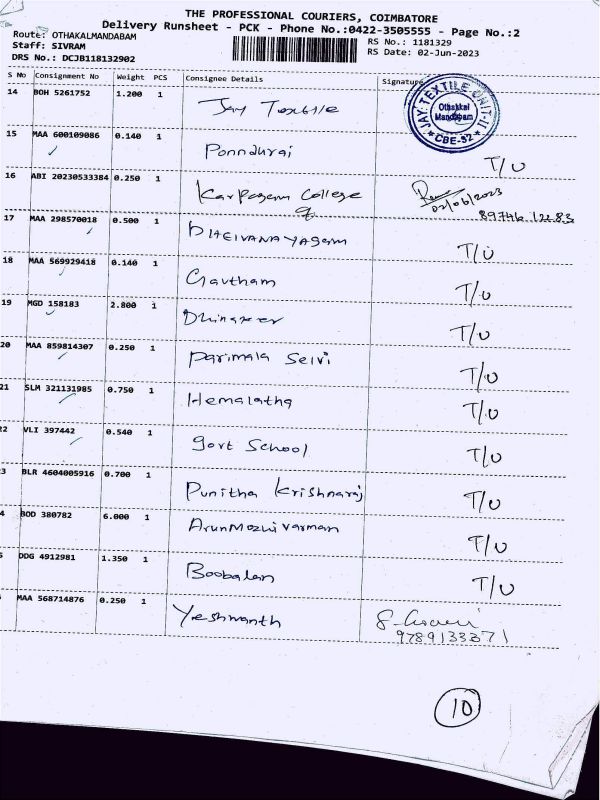 THE PROFESSIONAL COURIERS, COIMBATORE
Delivery Runsheet - PCK - Phone No.:0422-3505555 - Page No.:2
Route: OTHAKALMANDABAM
Staff: SIVRAM
DRS No.: DCJB118132902
RS No.: 1181329
RS Date: 02-Jun-2023
S No Consignment No Weight PCS Consignee Details Signature
14 BOH 5261752 1.200 1 Jay Textile
JAY TEXTILE UNIT-II
Othakkal
Mandabam
CBE-32
15 MAA 600109086 0.140 1 Ponndurai T/U
16 ABI 20230533384 0.250 1 Karpagam College
02/06/2023
17 MAA 298570018 0.500 1 DHEIVANAYAGAM T/U
18 MAA 569929418 0.140 1 Gautham T/U
19 MGD 158183 2.800 1 T/U
20 MAA 859814307 0.250 1 Parimala Selvi T/U
21 SLM 321131985 0.750 1 Hemalatha T/U
22 VLI 397442 0.540 1 Govt School T/U
3 BLR 4604005916 0.700 1 Punitha Krishnaraj T/U
4 BOD 380782 6.000 1 ArunMozhi Varman T/U
5 DDG 4912981 1.350 1 Boobalan T/U
MAA 568714876 0.250 1 Yeshwanth
9789133371
10